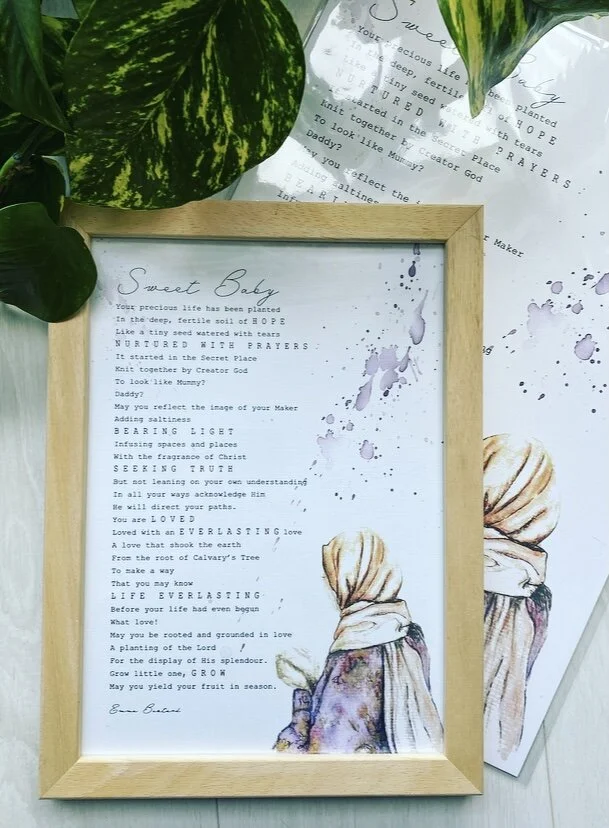 Sweet Baby
Your precious life has been planted
In the deep, fertile soil of HOPE
Like a tiny seed watered with tears
NURTURED WITH PRAYERS
It started in the Secret Place
Knit together by Creator God
To look like Mummy?
Daddy?
May you reflect the image of your Maker
Adding saltiness
BEARING LIGHT
Infusing spaces and places
With the fragrance of Christ
SEEKING TRUTH
But not leaning on your own understanding
In all your ways acknowledge Him
He will direct your paths.
You are LOVED
Loved with an EVERLASTING love
A love that shook the earth
From the root of Calvary's Tree
To make a way
That you may know
LIFE EVERLASTING
Before your life had even begun
What love!
May you be rooted and grounded in love
A planting of the Lord
For the display of His splendour.
Grow little one, GROW
May you yield your fruit in season.
Emma
Sweet Baby
Your precious life been planted
In the deep, fertile of HOPE
Like tiny seed watered with tears
NURTURED WITH PRAYERS
started in the Secret Place
Knit together by Creator God
To look like Mummy?
Daddy?
you reflect the
Adding saltiness
r Maker